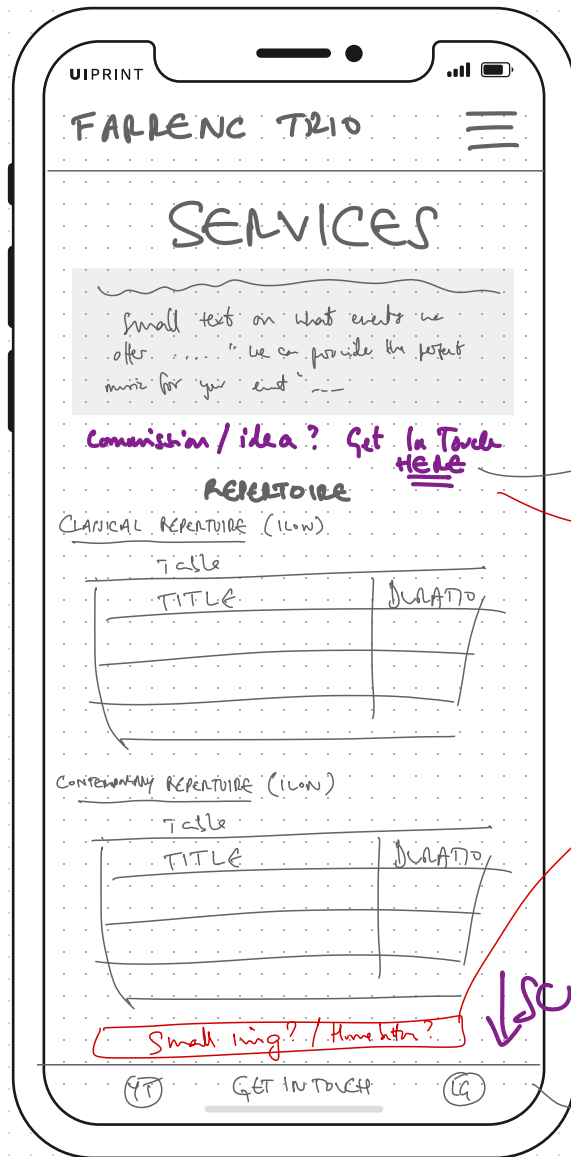 UIPRINT
FARRENC TRIO
SERVICES
Small text on what events we
offer .... "we can provide the perfect
music for your event" ---
Commission / idea? Get In Touch
HERE
REPERTOIRE
CLASSICAL REPERTOIRE (ICON)
Table
TITLE DURATIO
CONTEMPORARY REPERTOIRE (ICON)
Table
TITLE DURATIO
Small img? / Home button?
SC
YT GET IN TOUCH IG